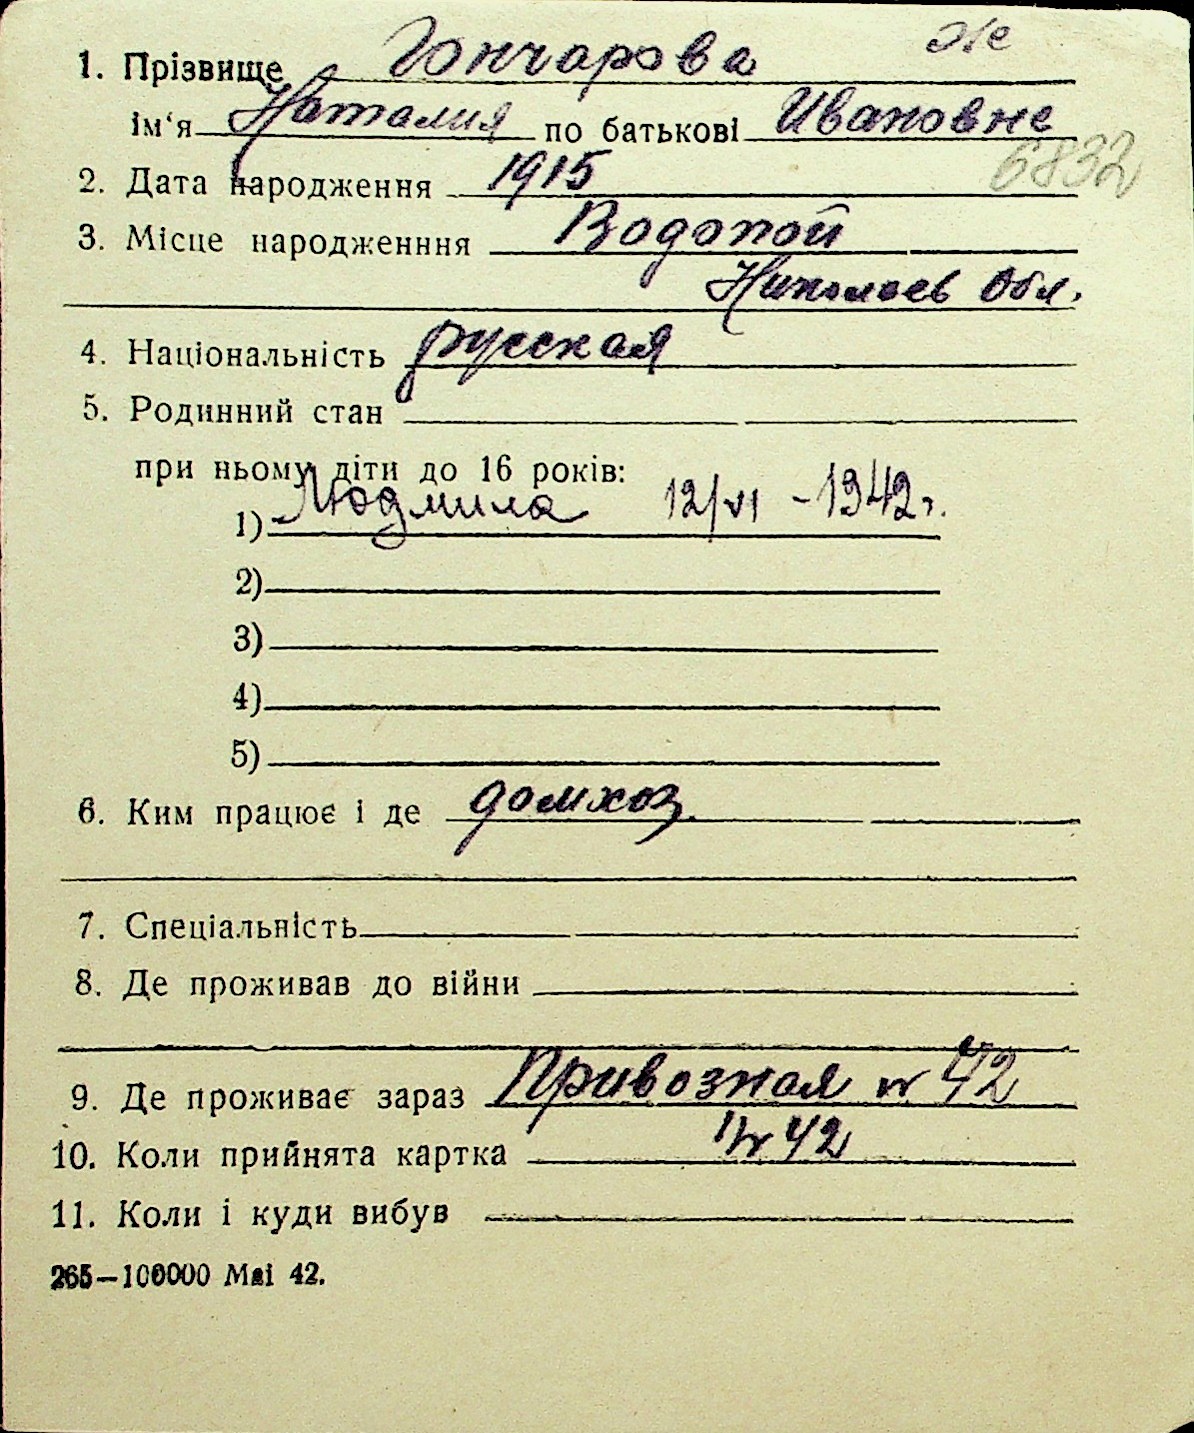 1. Прізвище Гончарова Же
ім‘я Наталия по батькові Ивановне
6832
2. Дата народження 1915
3. Місце народженння Водопой
Николаев Обл.
4. Національність русская
5. Родинний стан
при ньому діти до 16 років:
1) Людмила 12/VI - 1942г.
2)
3)
4)
5)
6. Ким працює і де домхоз.
7. Спеціальність
8. Де проживав до війни
9. Де проживає зараз Привозная № 42
10. Коли прийнята картка 42
11. Коли і куди вибув
265—100000 Mai 42.